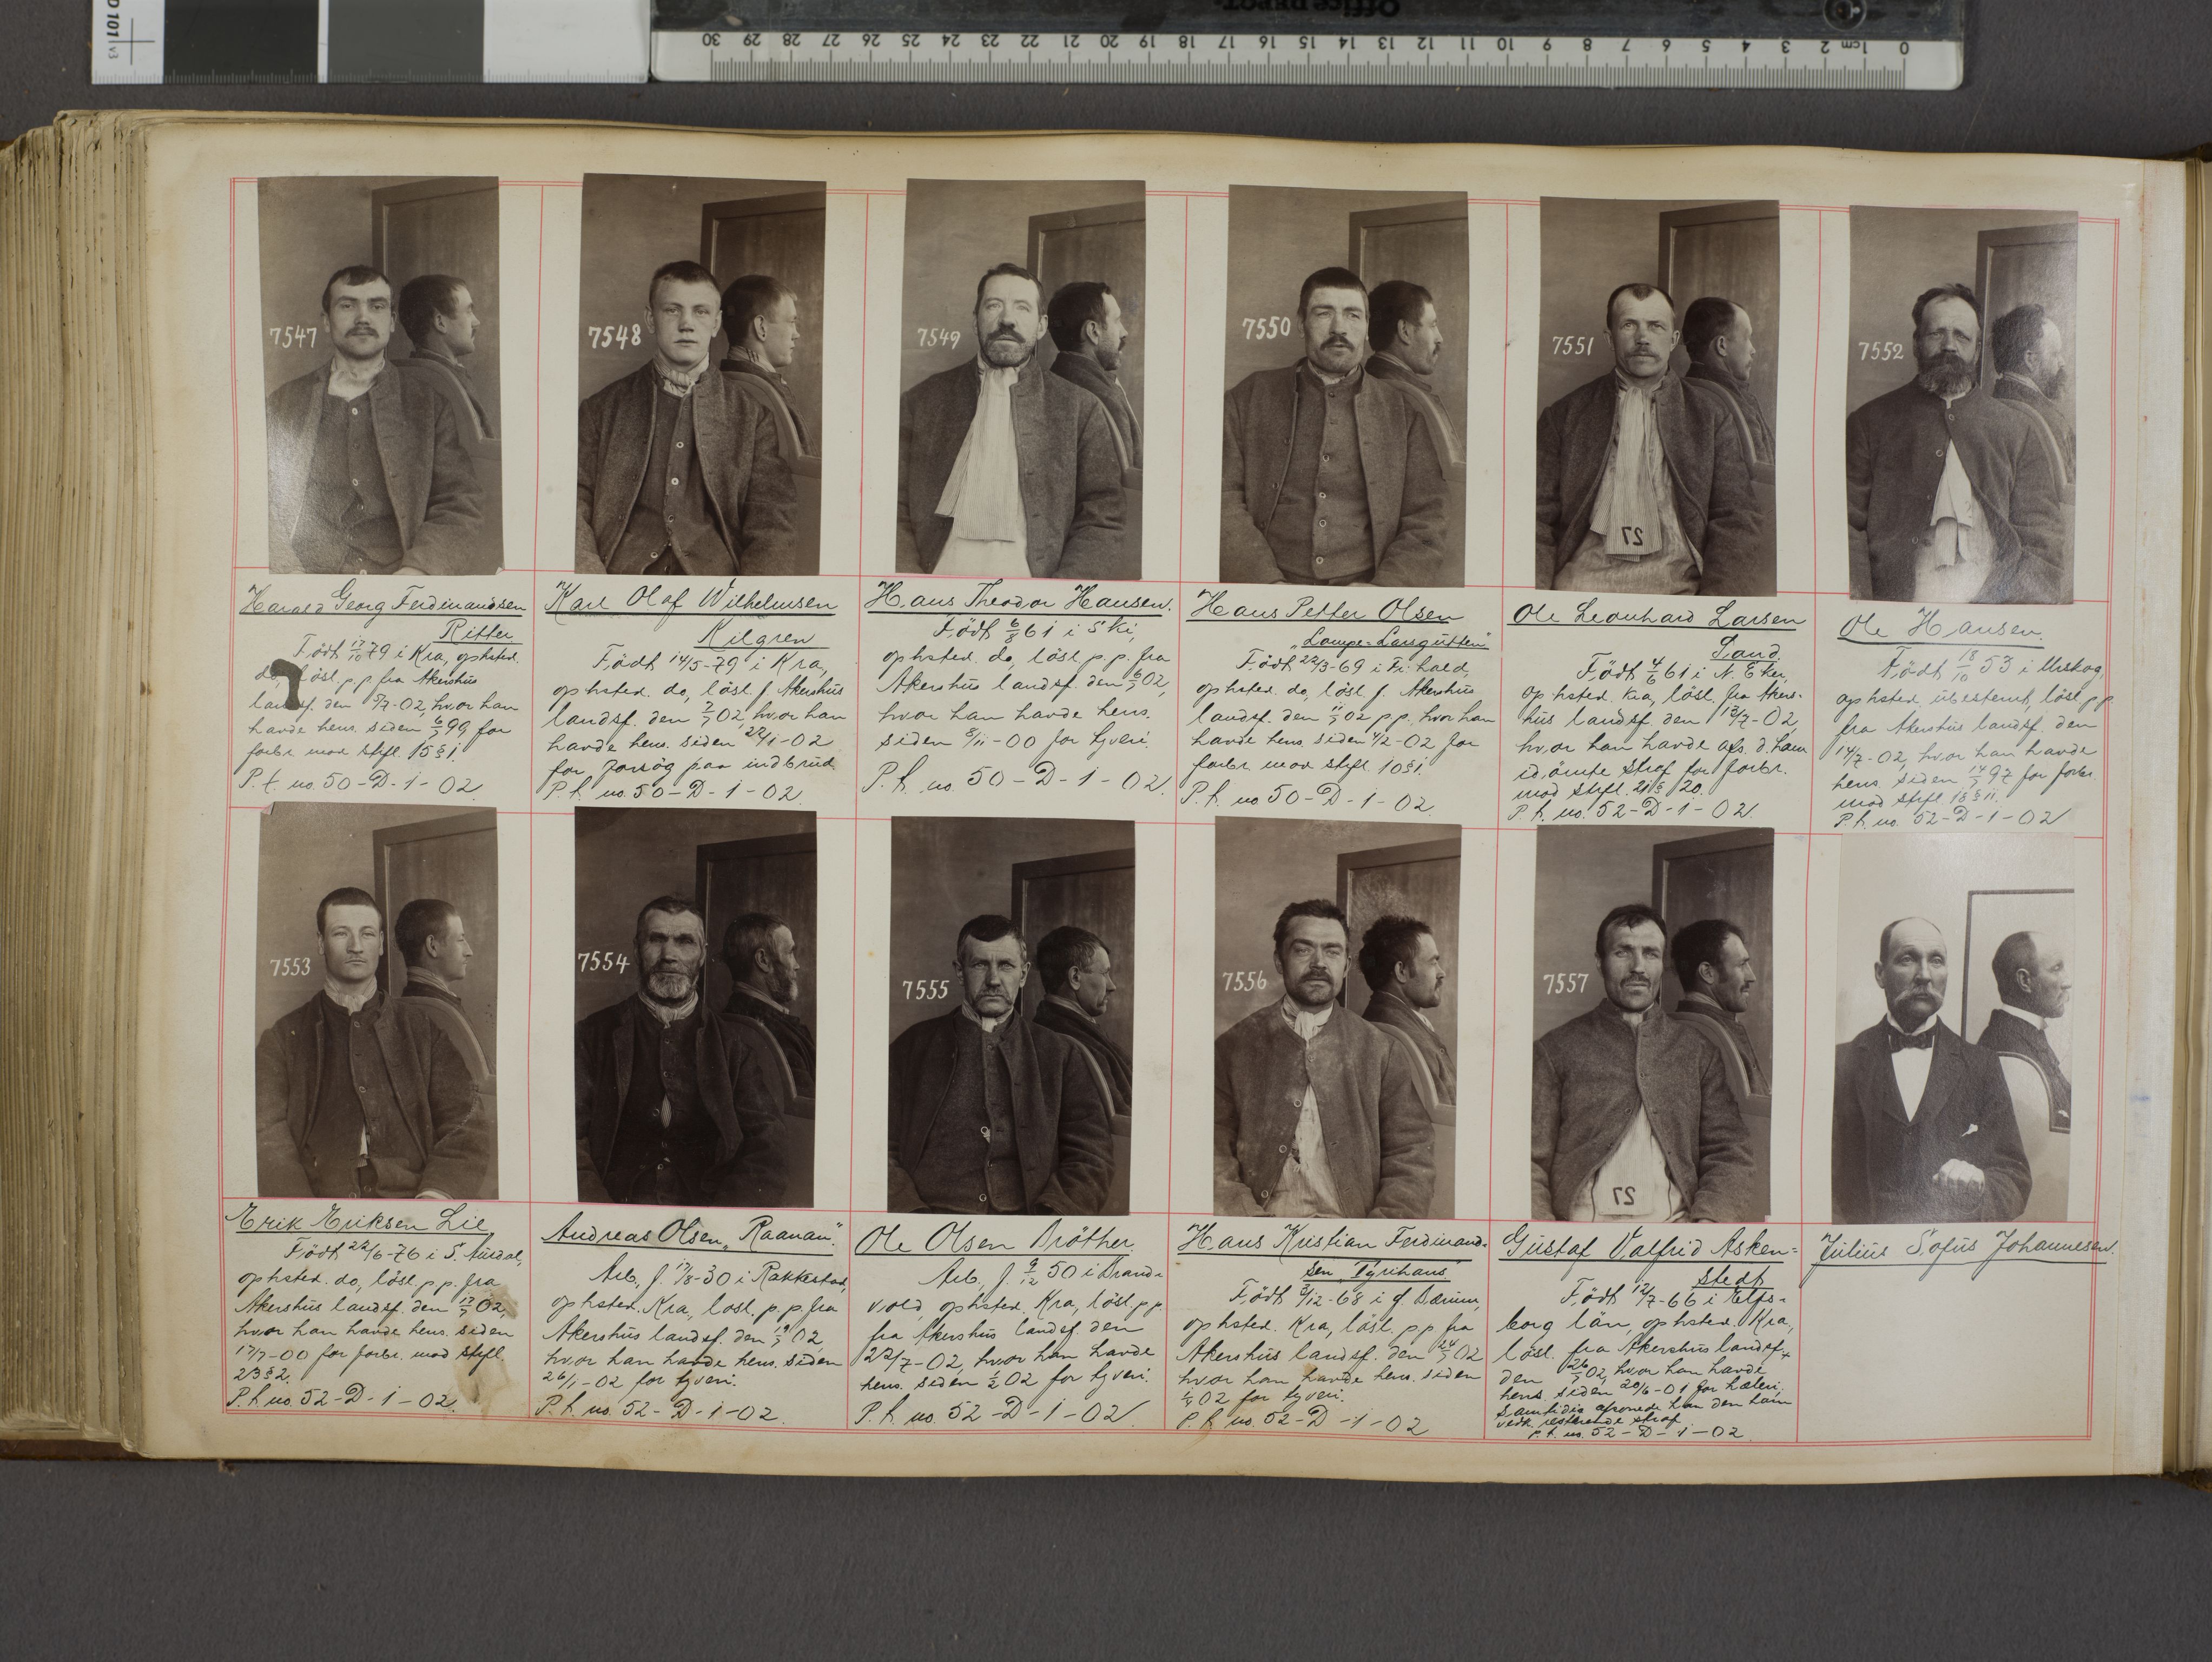 D 101 v3
Office DEPOT
0 1cm 2 3 4 5 6 7 8 9 10 11 12 13 14 15 16 17 18 19 20 21 22 23 24 25 26 27 28 29 30
7547
Harald Georg Ferdinandsen
Ritter
Født 17/10 79 i Kra, ophsted.
do, løsl. p.p. fra Akershus
landsf. den 5/7-02, hvor han
havde hens. siden 6/7 99 for
forbr. mod strfl. 15 § 1.
P.t. no. 50-D-1-02
7548
Karl Olaf Wilhelmsen
Kilgren
Født 14/5-79 i Kra,
ophsted. do, løsl. f. Akershus
landsf. den 7/7 02, hvor han
havde hens. siden 22/1-02
for forsøg paa indbrud.
P.t. no. 50-D-1-02
7549
Hans Theodor Hansen.
Født 6/8 61 i Ski,
ophsted. do, løsl. p.p. fra
Akershus landsf. den 6/7 02,
hvor han havde hens.
siden 8/11-00 for tyveri.
P.t. no. 50-D-1-02.
7550
Hans Petter Olsen
"Lampe-Larsgutten"
Født 22/3-69 i Fr:hald,
ophsted. do, løsl. f. Akershus
landsf. den 11/7 02 p.p. hvor han
havde hens. siden 4/2-02 for
forbr. mod strfl. 10 § 1.
P.t. no. 50-D-1-02.
7551
27
Ole Leonhard Larsen
Sand
Født 4/6 61 i N. Eker,
ophsted. Kra, løsl. fra Akers-
hus landsf. den 12/7-02,
hvor han havde afs. d. ham
idømte straf for forbr.
mod strfl. 21 § 20.
P.t. no. 52-D-1-02.
7552
Ole Hansen.
Født 18/10 53 i Urskog,
ophsted. ubestemt, løsl. p.p
fra Akershus landsf. den
14/7-02, hvor han havde
hens. siden 14/7 97 for forbr.
mod strfl. 18 § 11.
P.t. no. 52-D-1-02
7553
Erik Eriksen Lie,
Født 22/6-76 i S. Aurdal,
ophsted. do, løsl. p.p. fra
Akershus landsf. den 17/7 02,
hvor han havde hens. siden
17/7-00 for forbr. mod strfl.
23 § 2.
P.t. no. 52-D-1-02.
7554
Andreas Olsen "Raanaa".
Arb., f. 17/8-30 i Rakkestad,
ophsted. Kra., løsl. p.p. fra
Akershus landsf. den 19/7 02,
hvor han havde hens. siden
26/1-02 for tyveri.
P.t. no. 52-D-1-02.
7555
Ole Olsen Brøther.
Arb., f. 9/12 50 i Brand-
vold, ophsted. Kra, løsl. p.p.
fra Akershus landsf. den
22/7-02, hvor han havde
hens. siden 1/2 02 for tyveri.
P.t. no. 52-D-1-02.
7556
Hans Kristian Ferdinand-
sen "Tyrihans"
Født 9/12-68 i Ø. Bærum,
ophsted. Kra, løsl. p.p. fra
Akershus landsf. den 24/7 02
hvor han havde hens. siden
1/4 02 for tyveri.
P.t. no. 52-D-1-02
7557
27
Gustaf Valfrid Asken-
stedt
Født 12/7-66 i Elfs-
borg län, ophsted. Kra,
løsl. fra Akershus landsf.
den 26/7 02, hvor han havde
hens. siden 20/6-01 for hæleri,
Samtidig afsonede han den ham
vedk. resterende straf
P.t. no. 52-D-1-02.
Julius Sofus Johannesen.